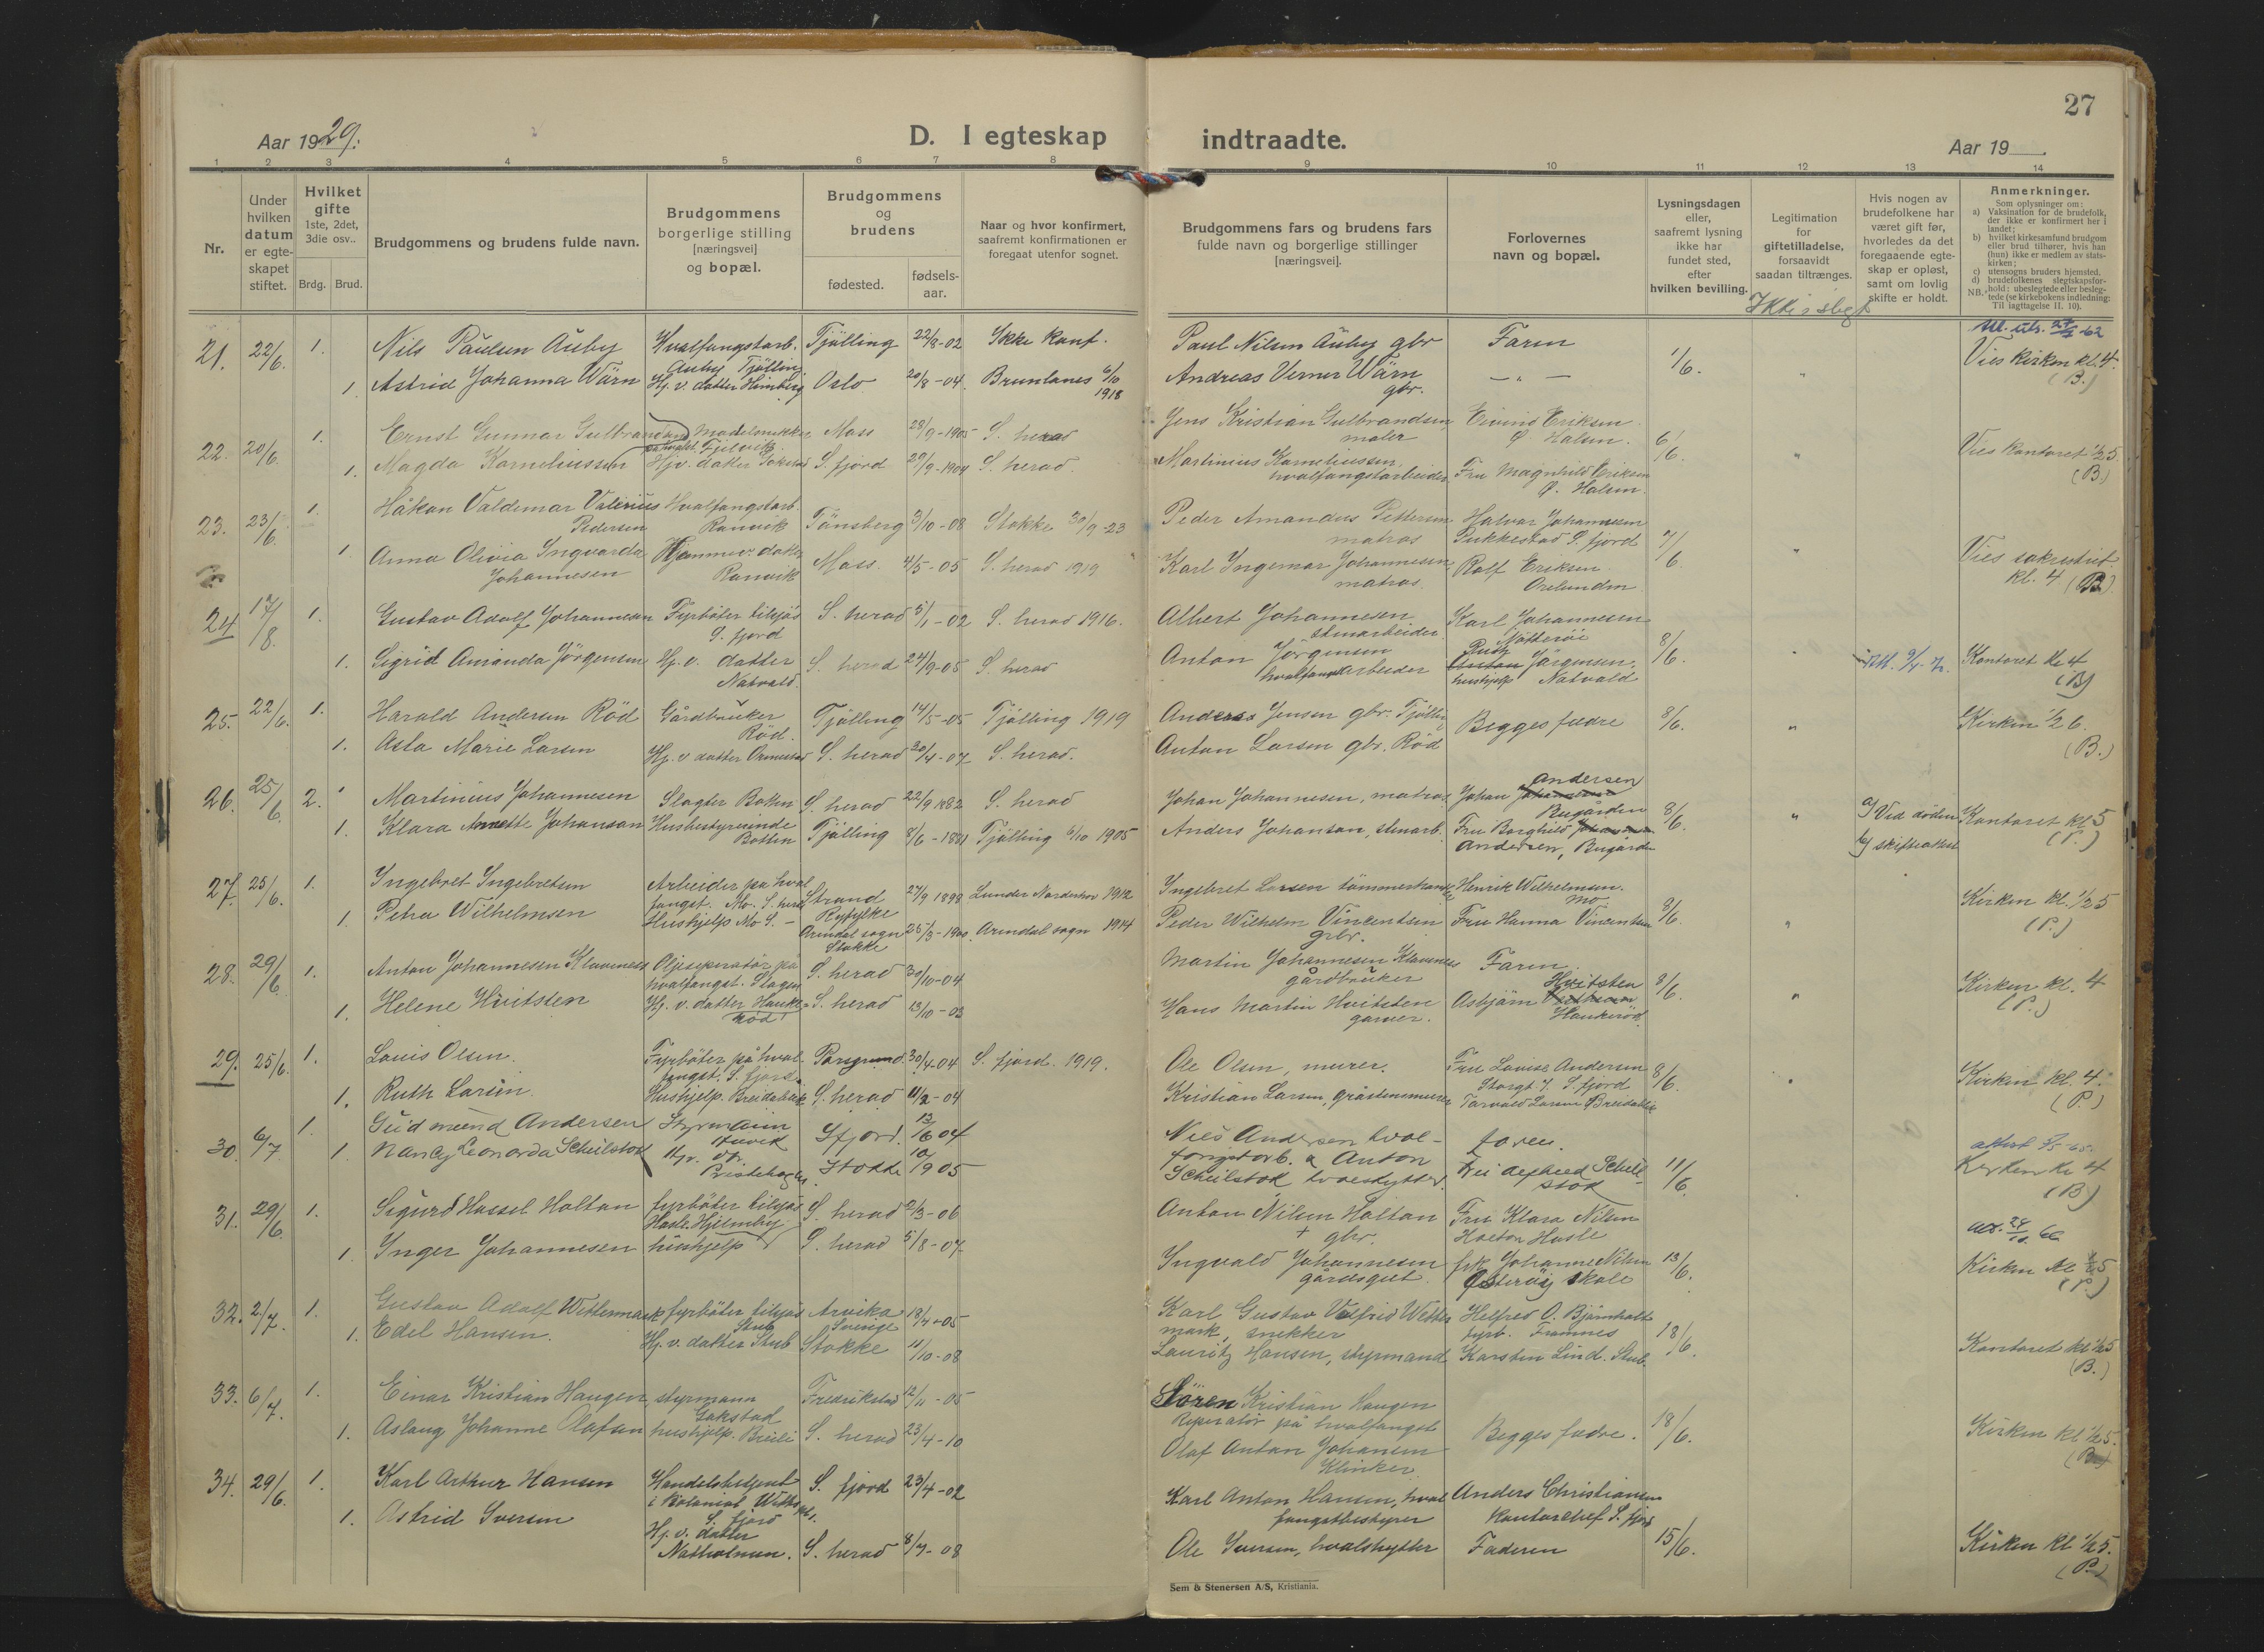 27
Aar 1929.
D. I egteskap indtraadte.
Aar 19
1 2 3 4 5 6 7 8 9 10 11 12 13 14
Nr.
Under hvilken datum er egteskapet stiftet.
Hvilket gifte 1ste, 2det, 3die osv..
Brdg. Brud.
Brudgommens og brudens fulde navn.
Brudgommens borgerlige stilling [næringsvei] og bopæl.
Brudgommens og brudens
fødested.
fødsels-aar.
Naar og hvor konfirmert, saafremt konfirmationen er foregaat utenfor sognet.
Brudgommens fars og brudens fars fulde navn og borgerlige stillinger [næringsvei].
Forlovernes navn og bopæl.
Lysningsdagen eller, saafremt lysning ikke har fundet sted, efter hvilken bevilling.
Legitimation for giftetilladelse, forsaavidt saadan tiltrænges.
Hvis nogen av brudefolkene har været gift før, hvorledes da det foregaaende egte-skap er opløst, samt om lovlig skifte er holdt.
Anmerkninger.
Som oplysninger om:
a) Vaksination for de brudefolk, der ikke er konfirmert her i landet;
b) hvilket kirkesamfund brudgom eller brud tilhører, hvis han (hun) ikke er medlem av stats-kirken;
c) utensogns bruders hjemsted,
d) brudefolkenes slegtskapsfor-hold: ubeslegtede eller besleg-tede (se kirkebokens indledning: Til iagttagelse II. 10).
NB.
Ikke i slegt
21. 22/6. 1. Nils Paulsen Auby Hvalfangstarb. Auby Tjölling Tjölling 22/8-02 Ikke konf. Paul Nilsen Auby gbr Faren 1/6. Vies kirken kl. 4. (B.)
1. Astrid Johanna Wärn Hj. v. datter Himberg Oslo 20/8-04. Brunlanes 6/10 1918 Andreas Verner Wärn gbr. — " —
22. 20/6. 1. Ernst Gunnar Gulbrandsen Mass 28/9-1905 S. herad Jens Kristian Gulbrandsen maler Eivind Eriksen Ø. Halsen. 6/6. Vies kontoret 1/2 5 (B.)
1. Magda Korneliussen Hjv. datter S. fjord 29/9-1904 S. herad. Martinius Korneliussen hvalfangstarbeider Fru Magnhild Eriksen Ø. Halsen.
23. 23/6. 1. Håkon Valdemar Valerius Pedersen Hvalfangstarb. Ranvik Tönsberg 3/10-08 Stokke 30/9-23 Peder Amandus Pettersen matros Halvor Johannesen Pukkestad S. fjord 7/6. Vies sakristiet kl. 4 (B.)
1. Anna Olivia Ingvarda Johannesen Hjemmev. datter Ranvik Mass. 4/5-05 S. herad 1919 Karl Ingemar Johannesen matros. Rolf Eriksen Orelunden
24 17/8. 1. Gustav Adolf Johannesen Fyrböter tilsjös S. fjord S. herad 5/1-02 S. herad 1916. Albert Johannesen stenarbeider Karl Johannesen Nötteröi 8/6. Kontoret kl 4 (B)
1. Sigrid Amanda Jörgensen Hj. v. datter Natvald. S. herad 24/9-05 S. herad Anton Jörgensen hvalfangstarbeider Ruth Jörgensen, hushjelp Natvald
25. 22/6. 1. Harald Andersen Röd Gårdbruker Röd. Tjölling 14/5-05 Tjölling 1919 Anders Jensen gbr. Tjölling Begges fædre 8/6. Kirken 1/2 6. (B.)
1. Asta Marie Larsen Hj. v datter Ormestad S. herad 20/4-07 S. herad. Anton Larsen gbr. Röd
26. 25/6. 2. Martinius Johannesen Slagter Botten S. herad 22/9 1882 S. herad Johan Johannesen, matros Johan Andersen Bugården 8/6. a) Ved döden b) skifteattest Kontoret kl 5 (P.)
1. Klara Annette Johanson Husbestyrerinde Botten Tjölling 8/6-1881 Tjölling 6/10 1905 Anders Johanson, stenarb. Fru Borghild Andersen, Bugården
27. 25/6. 1. Ingebret Ingebretsen Arbeider på hvalfangst. Mo. S. herad Strand Ryfylke 27/9 1898 Lunder Norderhov 1912 Ingebret Larsen tömmerhandler Henrik Wilhelmsen. Mo 8/6. Kirken kl. 1/2 5 (P.)
1. Petra Wilhelmsen Hushjelp Mo S. - Arendal sogn Stokke 25/3-1900. Arendal sogn 1914 Peder Wilhelm Vincentsen gbr. Fru Hanna Vincentsen
28. 29/6. 1. Anton Johannesen Klavenes Oljeseperatör på hvalfangst. S. herad 30/10-04 Martin Johannesen Klavenes gårdbruker Faren. 8/6. Kirken kl. 4 (P.)
1. Helene Hvitsten Hj. v. datter Haukeröd S. herad 23/10-03 Hans Martin Hvitsten garver. Asbjörn Hvitsten Haukeröd.
29. 25/6. 1. Louis Olsen. Fyrböter på hvalfangst. S. fjord. Porsgrund. 30/4-04 S. fjord. 1919. Ole Olsen, murer. Fru Louise Andersen Storgt. 7. S. fjord 8/6. Kirken kl. 4. (P.)
1. Ruth Larsen Hushjelp. Breidablik S. herad 11/2-04 Kristian Larsen, gråstensmurer Torvald Larsen Breidablik
30. 6/7 1. Gudmund Andersen Styrmann Sfjord. 12/6 04 Nils Andersen hvalfangstarb. faren. 11/6. Kirken kl 4 (B)
1. Nancy Leonarda Scheilstok Stokke 10/9 05 Anton Scheilstok hvalskytter.
31. 29/6. 1. Sigurd Hassel Holtan fyrböter tilsjös Hasle. Hjelmby S. herad 2/3-06 Anton Nilsen Holtan + gbr. Fru Klara Nilsen Holtan Hasle 13/6. Kirken kl 1/2 5 (P.)
1. Inger Johannesen hushjelp S. herad 5/8-07 Ingvald Johannesen gårdsgut. frk Johanne Nilsen Österöi skole
32. 2/7. 1. Gustav Adolf Wettermark fyrböter tilsjös Stub Arvika Sverige 19/4-05 Karl Gustav Valfrid Wettermark, snekker Helfred O. Bjørnholt fyrb. Framnes 18/6. Kontoret kl 1/2 5 (B.)
1. Edel Hansen. Hj. v. datter Stub Stokke 11/10-08 Lauritz Hansen, styrmand Karsten Lind. Stub.
33. 6/7. 1. Einar Kristian Haugen styrmann Gokstad Fredrikstad 12/11-05 Sören Kristian Haugen Reperatör på hvalfangst Begges fædre. 18/6. Kirken kl 1/2 5.
1. Aslaug Johanne Olafsen hushjelp. Breili S. herad 23/4-10 Olaf Anton Johansen Klinker
34. 29/6. 1. Karl Arthur Hansen Handelsbetjent i kolonial S. fjord S. fjord 23/4-02 Karl Anton Hansen, hvalfangstbestyrer Anders Christiansen kontorchef S. fjord 15/6. Kirken kl 1/2 5. (P.)
1. Astrid Iversen Hj. v. datter Natholmen. S. herad 8/7-08 Ole Iversen, hvalskytter Faderen
Sem & Stenersen A/S, Kristiania.